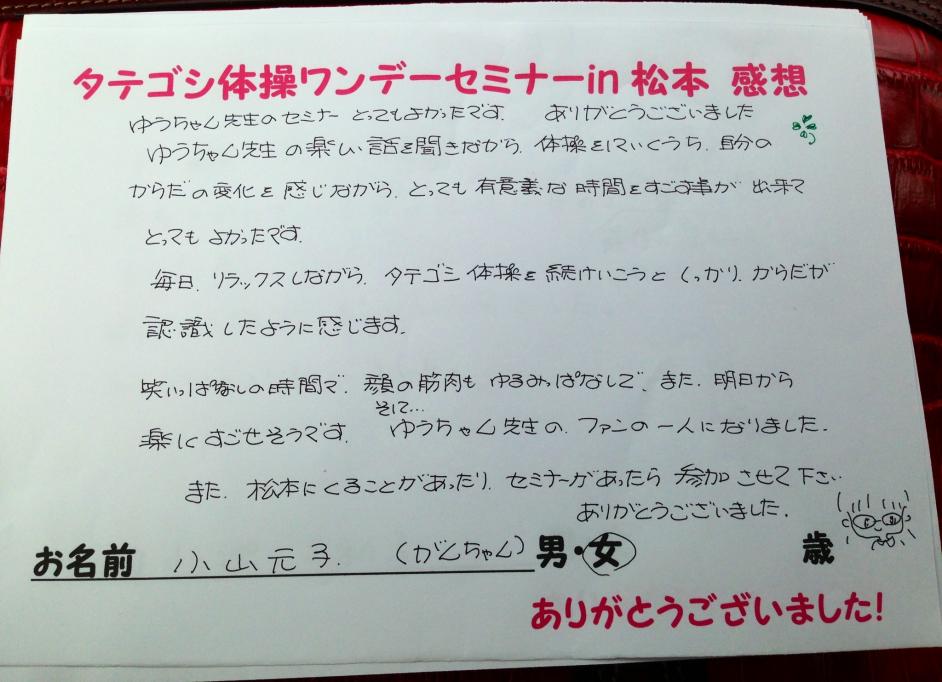 タテゴシ体操ワンデーセミナーin 松本 感想
ゆうちゃん先生のセミナー とってもよかったです. ありがとうございました
ゆうちゃん先生 の楽しい話を聞きながら. 体操をしていくうち. 自分の
からだの変化を感じながら. とっても 有意義な 時間をすごす事が 出来て
とっても よかったです.
毎日. リラックスしながら. タテゴシ体操を続けいこうと しっかり. からだが
認識したように感じます.
笑いっぱなしの時間で. 顔の筋肉も ゆるみっぱなしで、また. 明日から
そして…
楽しくすごせそうです. ゆうちゃん先生の. ファンの一人になりました.
また. 松本にくることがあったり. セミナーがあったら 参加させて下さい
ありがとうございました.
お名前 小山元子. (がんちゃん) 男・女 歳
ありがとうございました!